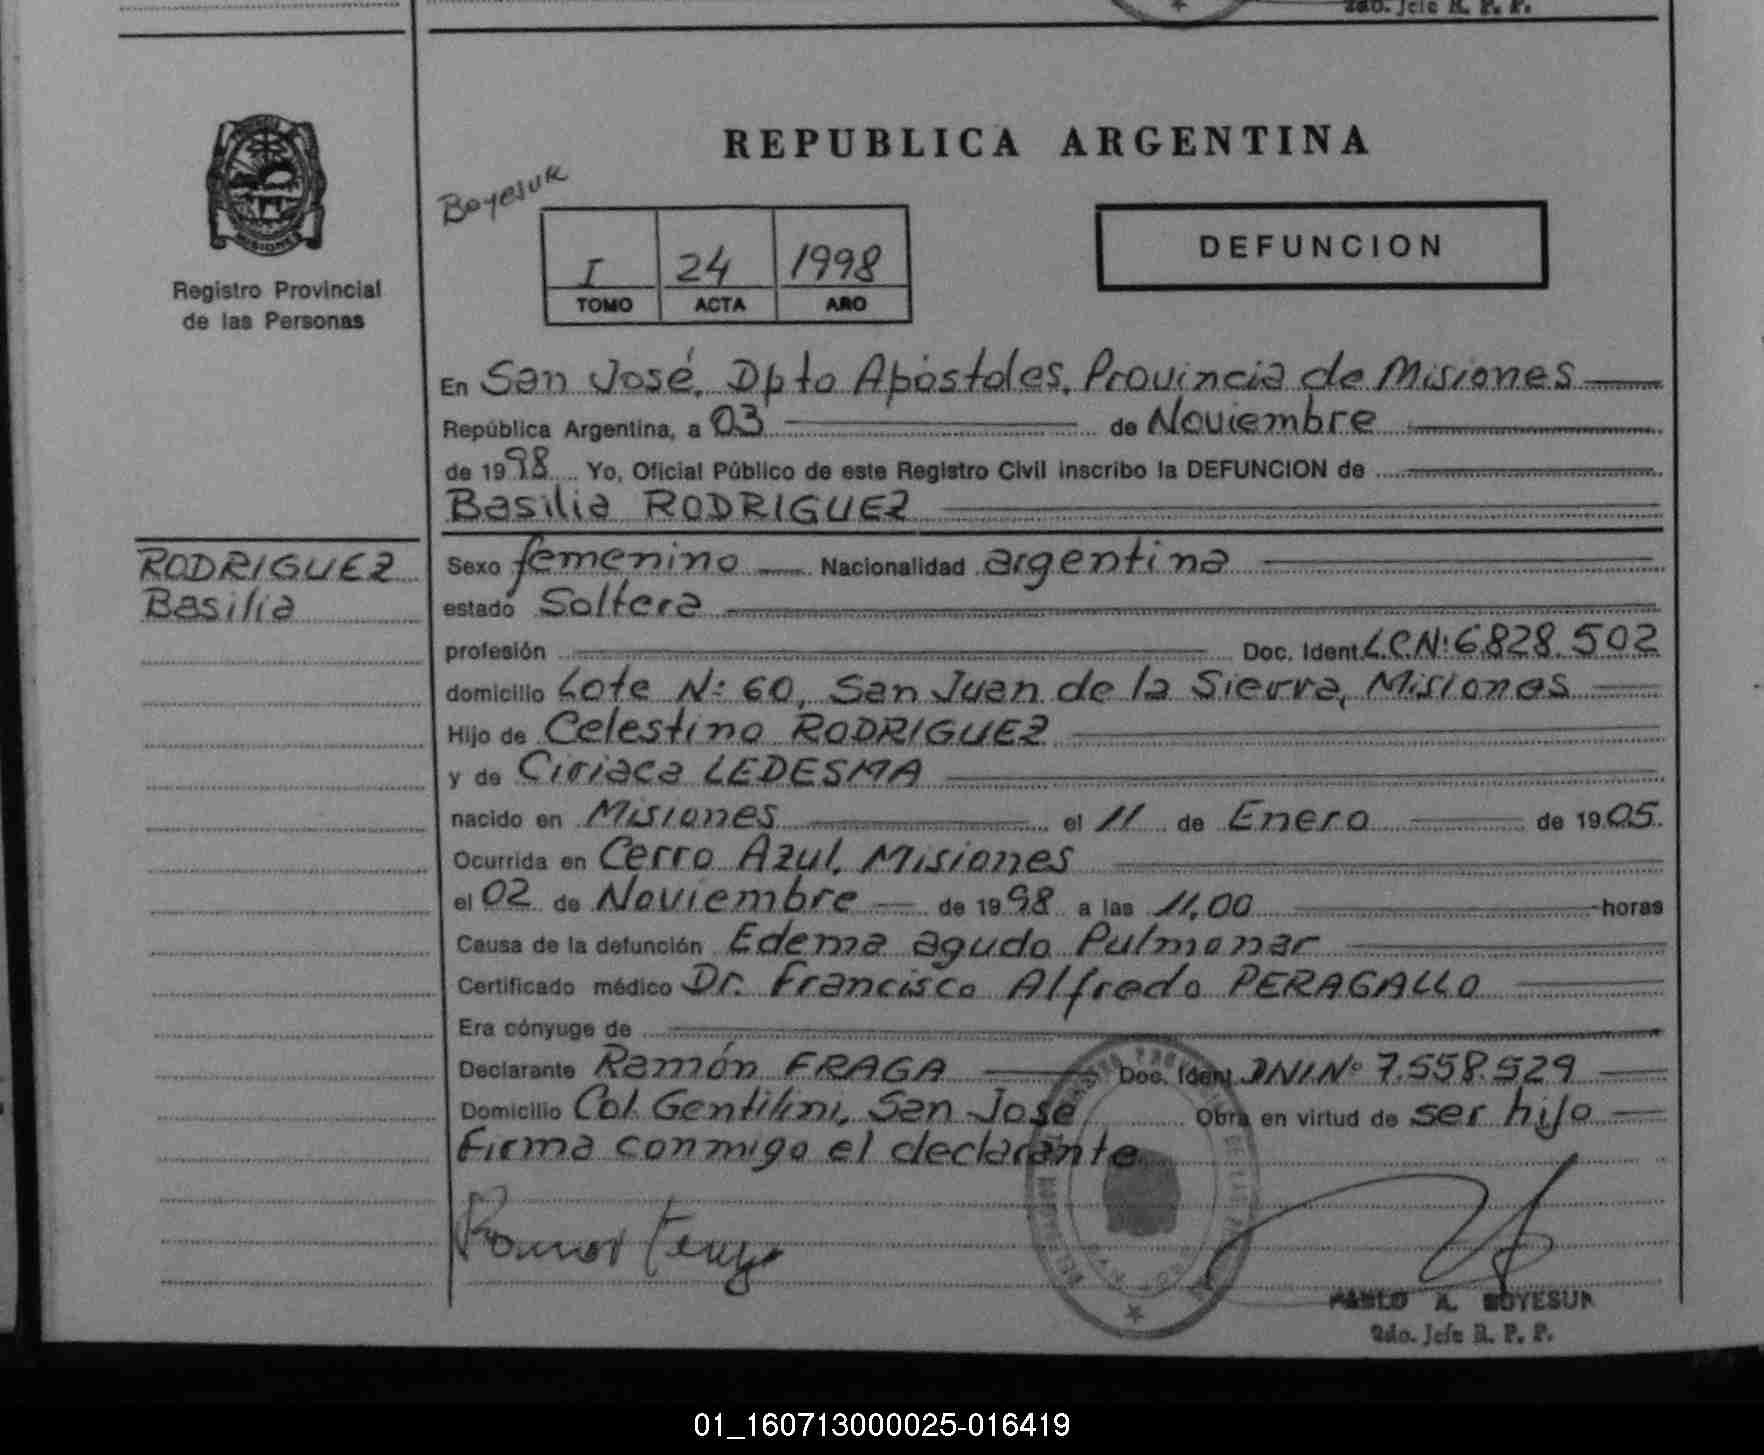 2do. Jefe R. P. P.
REPUBLICA ARGENTINA
Boyesuk
MISIONES
Registro Provincial
de las Personas
I 24 1998
TOMO ACTA AÑO
DEFUNCION
En San José, Dpto Apóstoles, Provincia de Misiones
República Argentina, a 03 de Noviembre
de 1998 Yo, Oficial Público de este Registro Civil inscribo la DEFUNCION de
Basilia RODRIGUEZ
RODRIGUEZ
Basilia
Sexo femenino Nacionalidad argentina
estado Soltera
profesión Doc. Ident. L.C.Nº: 6828.502
domicilio Lote Nº: 60, San Juan de la Sierra, Misiones
Hijo de Celestino RODRIGUEZ
y de Ciriaca LEDESMA
nacido en Misiones el 11 de Enero de 1905.
Ocurrida en Cerro Azul, Misiones
el 02 de Noviembre de 1998 a las 11,00 horas
Causa de la defunción Edema agudo Pulmonar
Certificado médico Dr. Francisco Alfredo PERAGALLO
Era cónyuge de
Declarante Ramón FRAGA Doc. Ident. DNI.Nº 7.558.529
Domicilio Col. Gentilini, San José Obra en virtud de ser hijo
Firma conmigo el declarante
PABLO A. BOYESUK
2do. Jefe R. P. P.
01_160713000025-016419